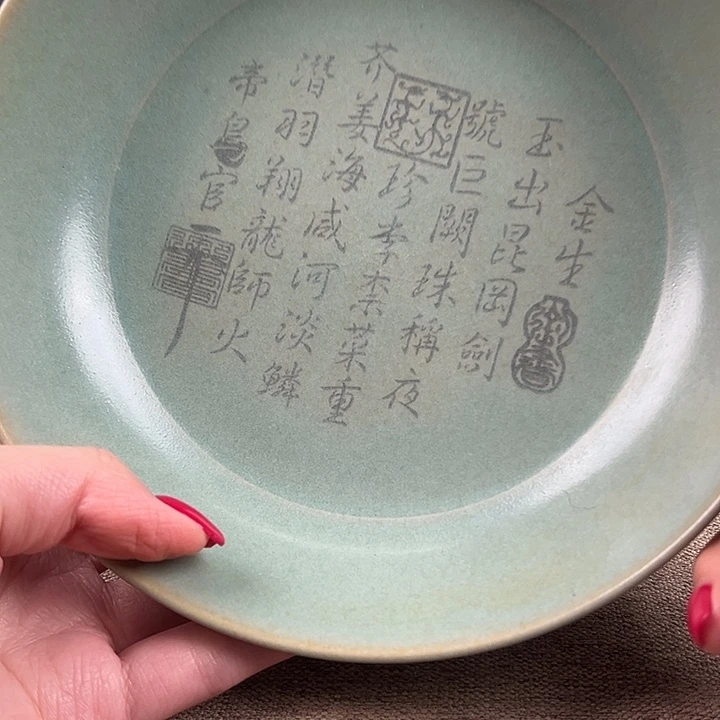 金生
玉出昆岡劍
號巨闕珠稱夜
珍李柰菜重
芥姜海咸河淡鱗
潛羽翔龍師火
帝鳥官